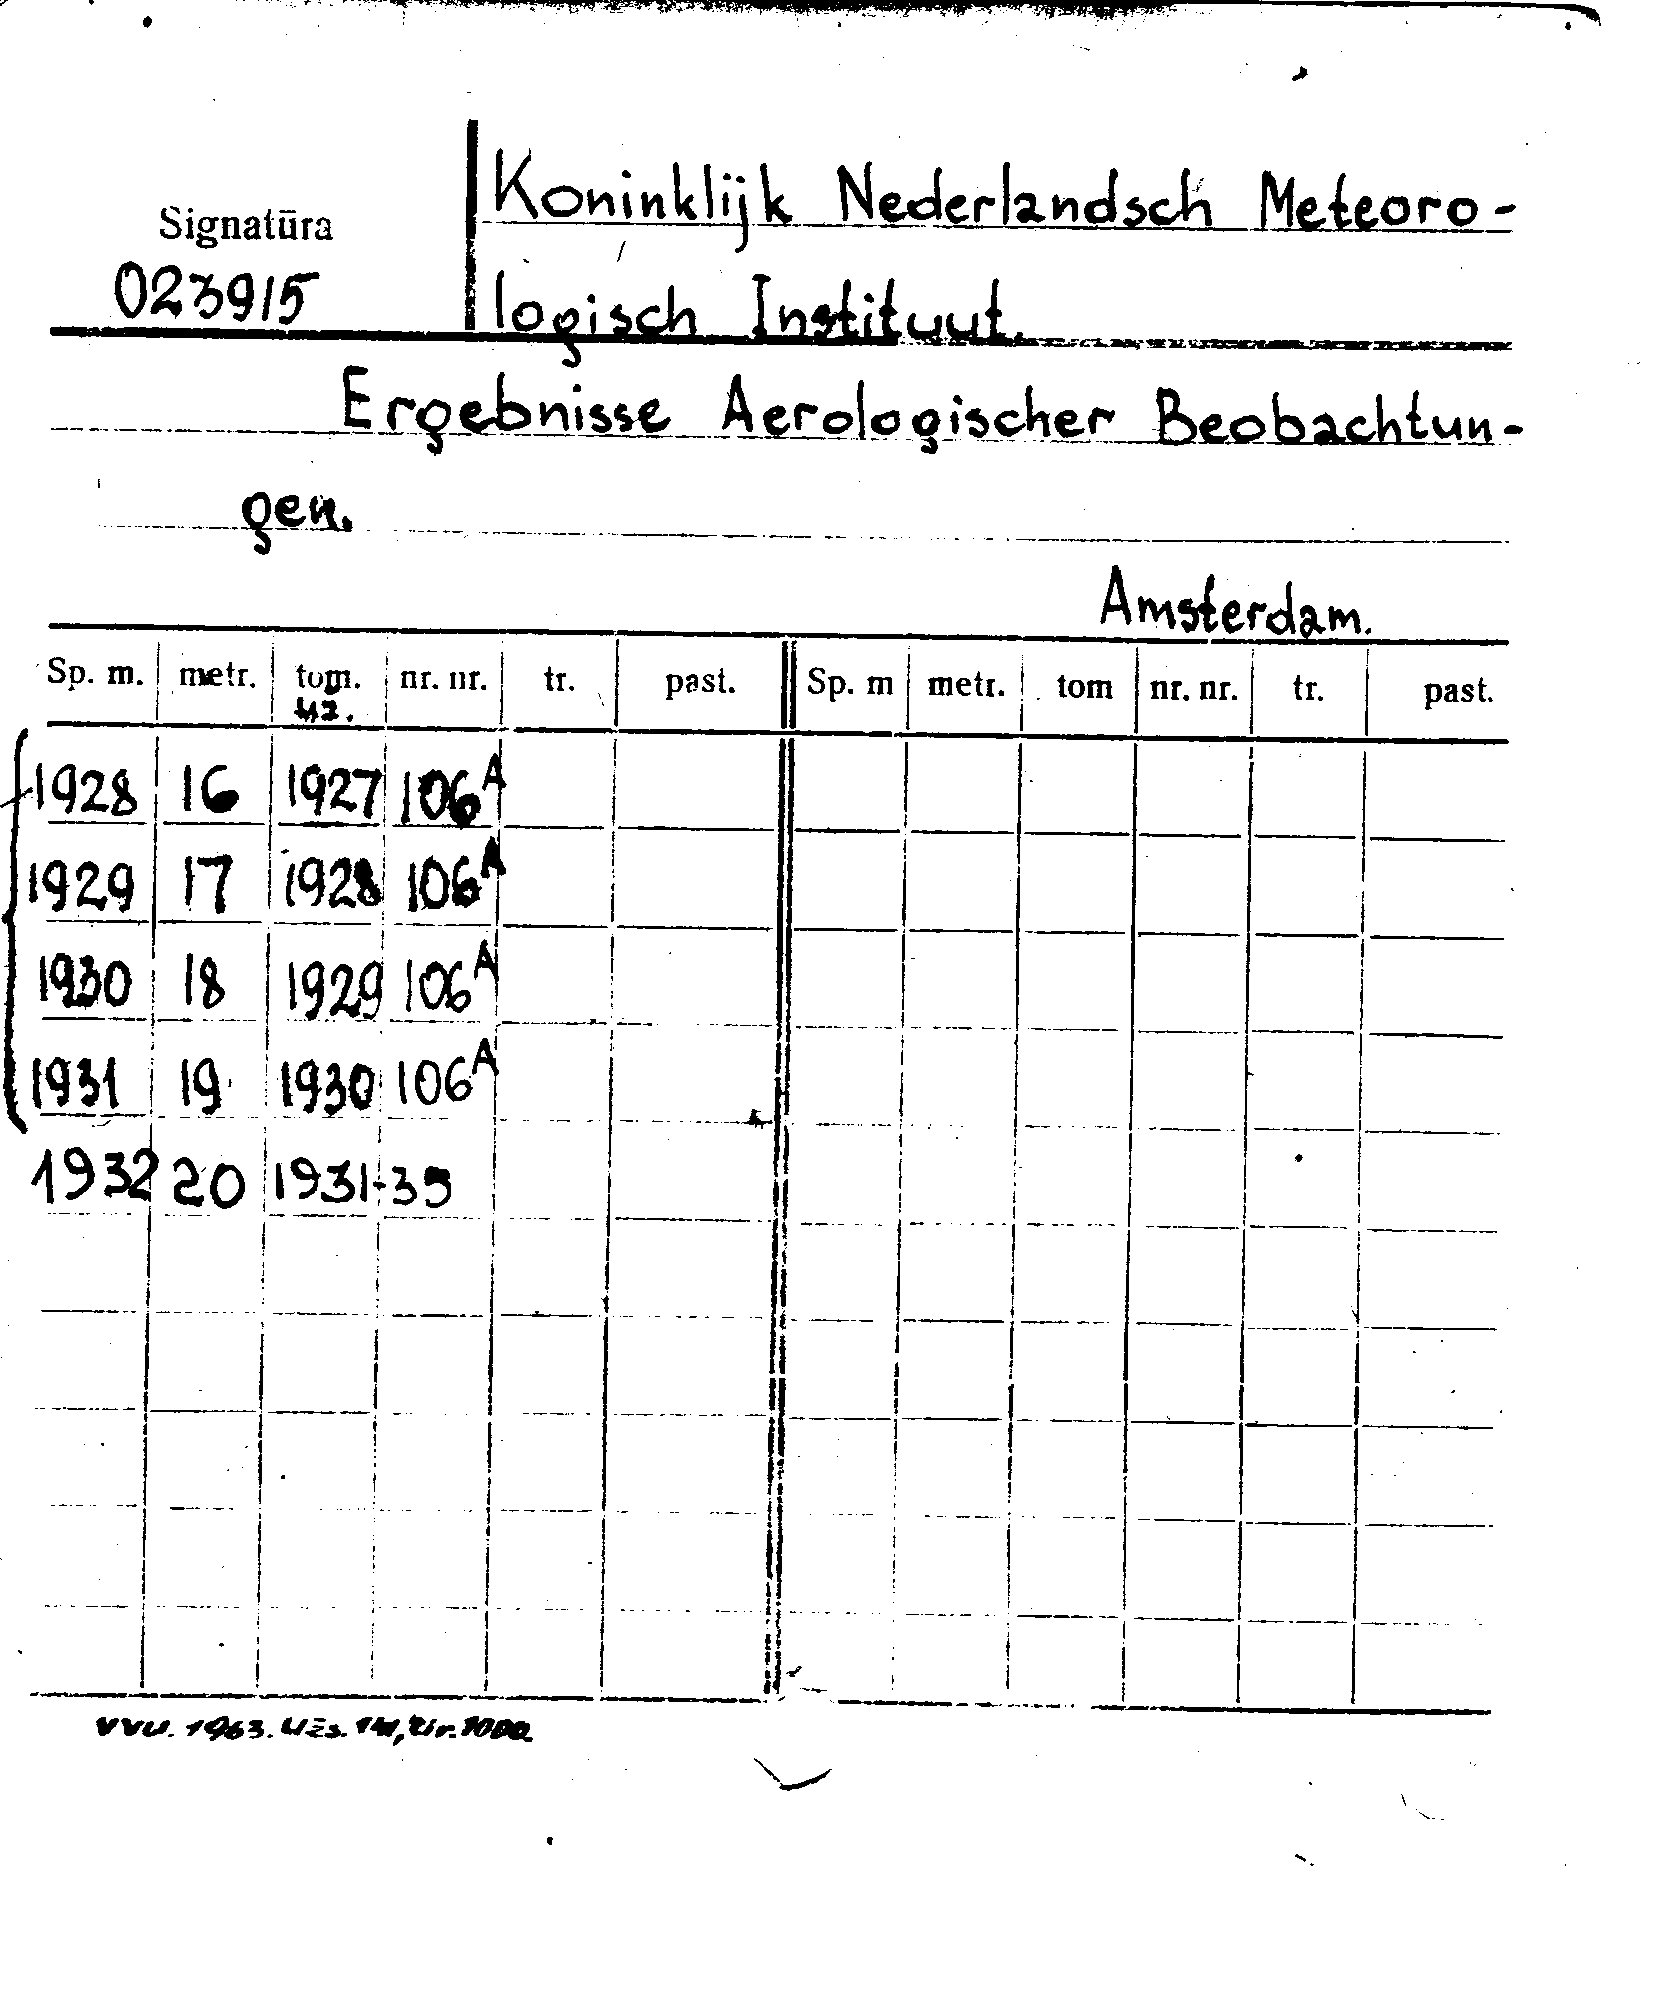 Koninklijk Nederlandsch Meteoro-
Signatūra
023915
logisch Instituut.
Ergebnisse Aerologischer Beobachtun-
gen.
Amsterdam.
Sp. m. metr. tom. nr. nr. tr. past. Sp. m metr. tom nr. nr. tr. past.
uz.
1928 16 1927 106A
1929 17 1928 106A
1930 18 1929 106A
1931 19 1930 106A
1932 20 1931-39
VVU. 1963. Užs. 141, tir. 1000